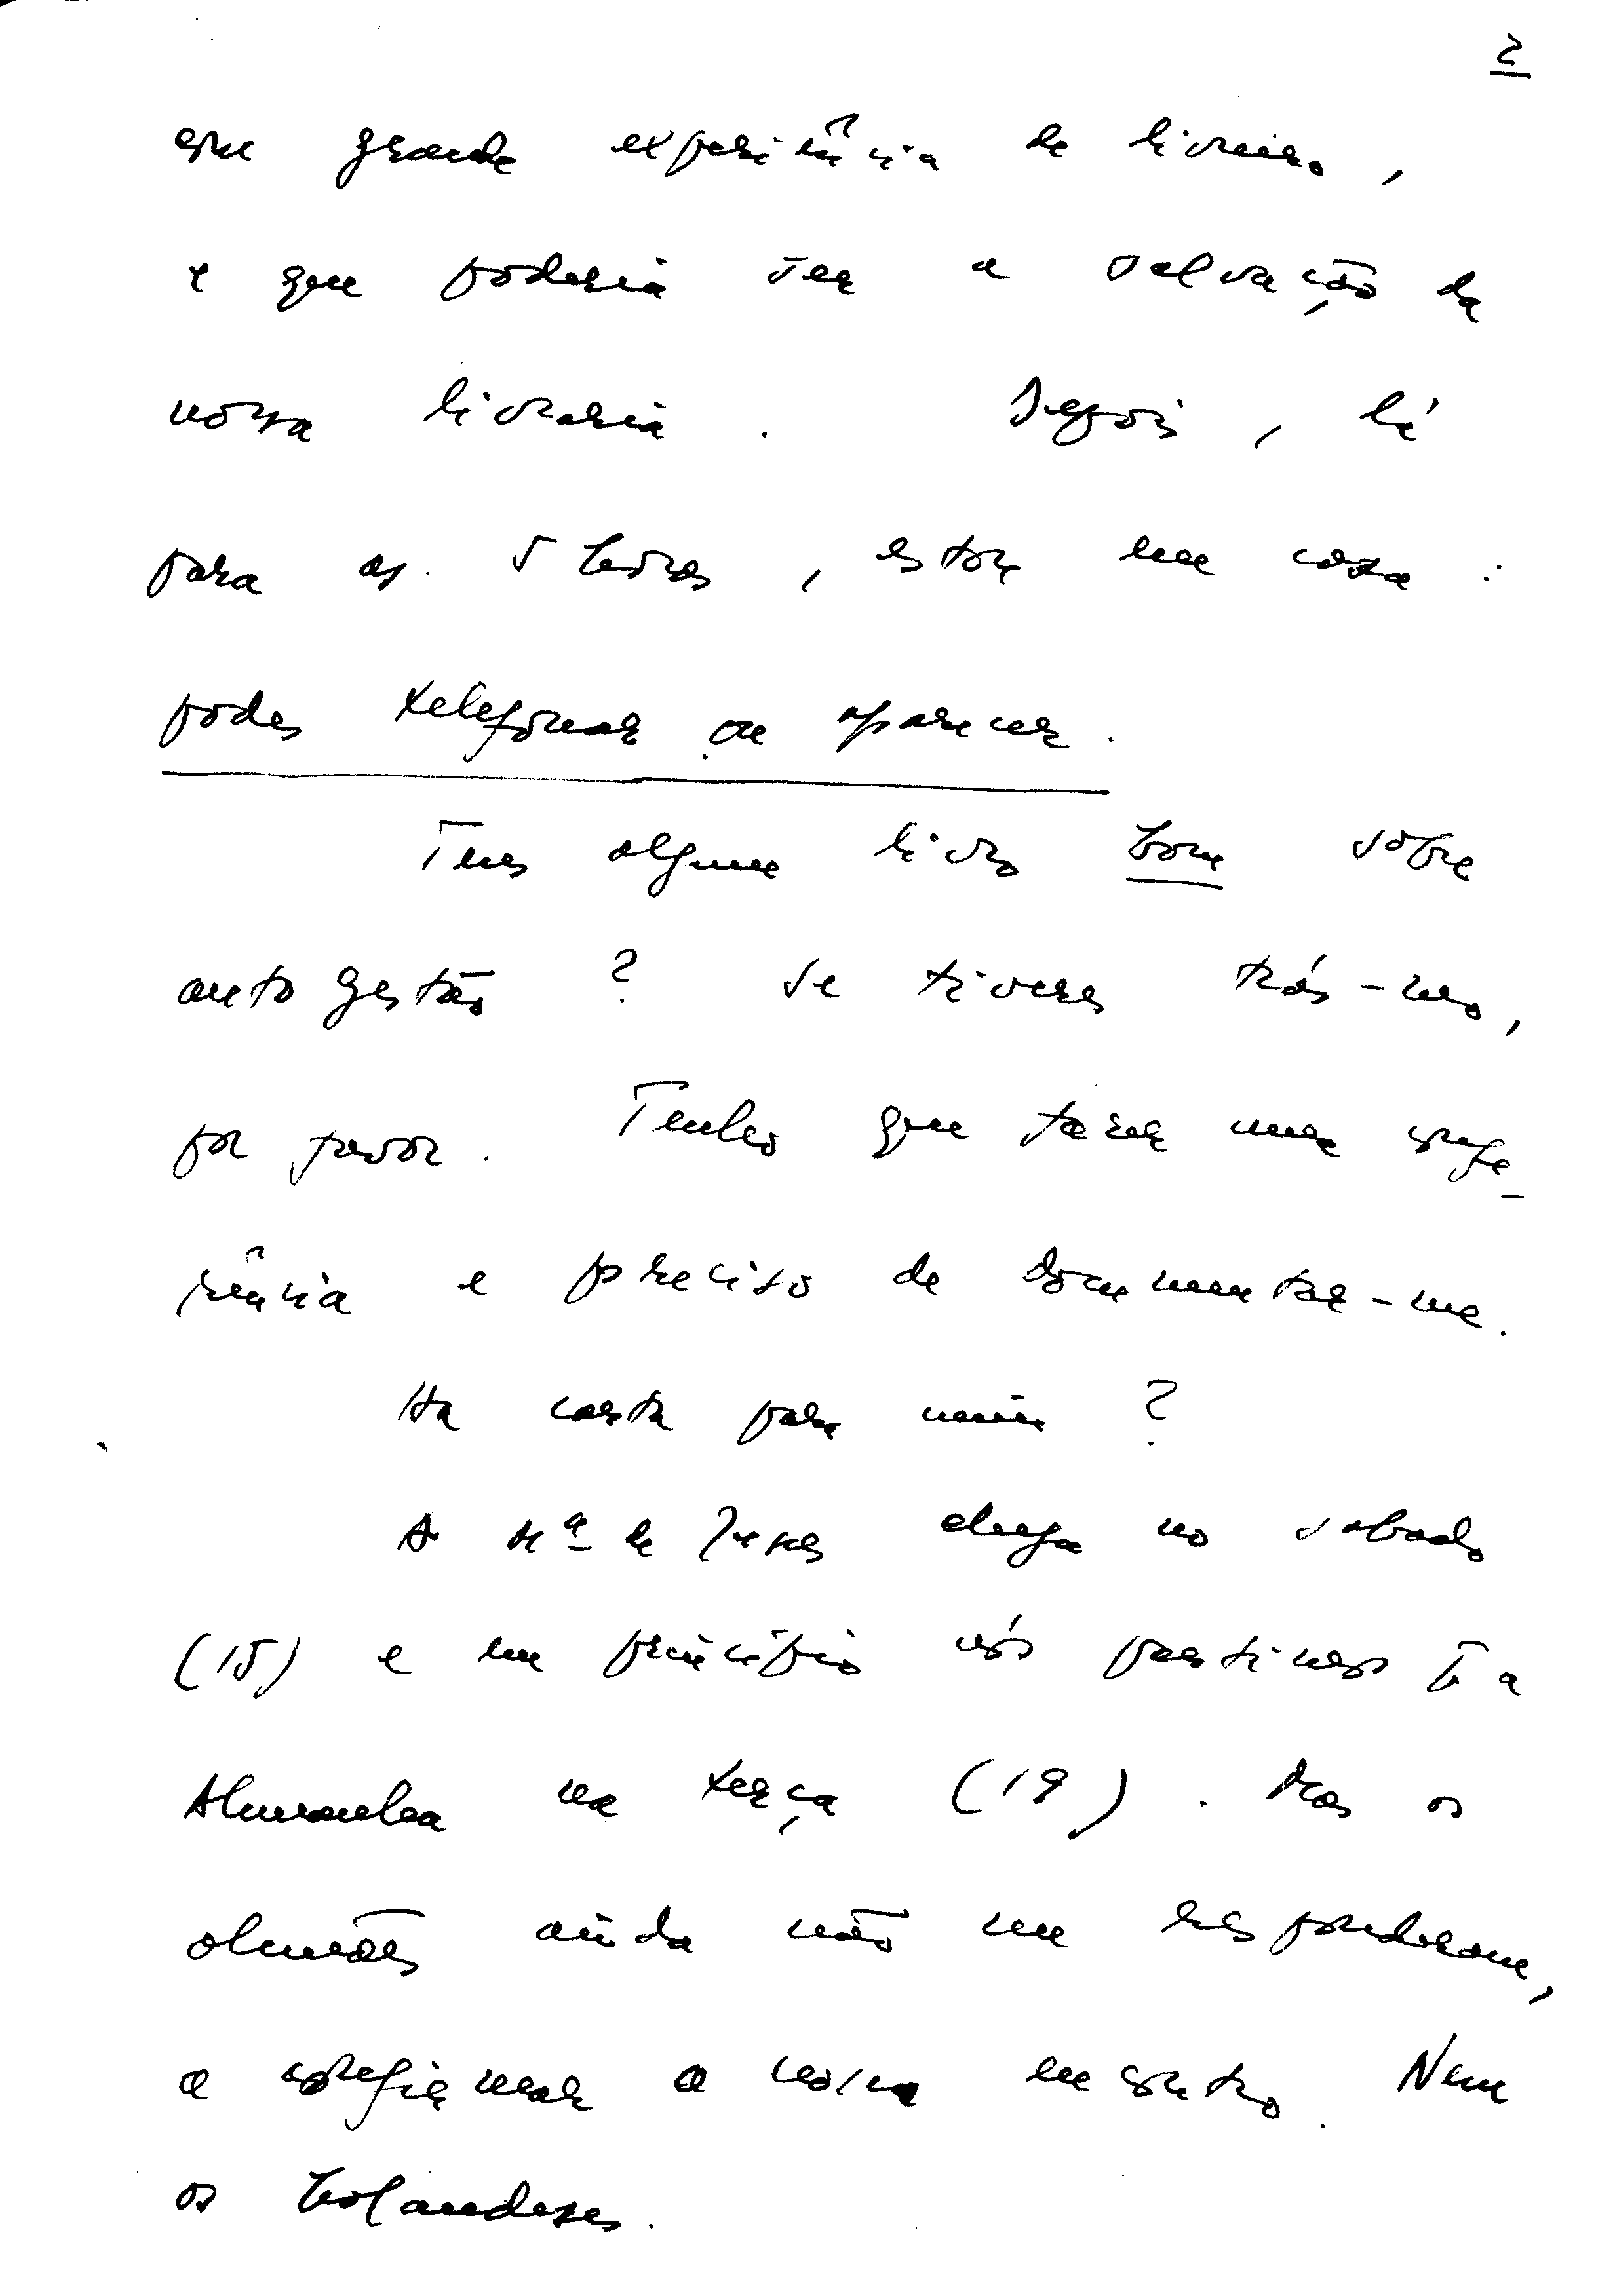 2
com grande experiência de livreiro,
e que poderia ser a salvação da
nossa livraria. Depois, lá
para as 5 horas, estou em casa:
podes telefonar ou aparecer.
Tens algum livro bom sobre
autogestão? Se tiveres trás-mo,
por favor. Tenho que fazer uma confe-
rência e preciso de documentar-me.
Há carta para mim?
A Mª de Jesus chega no sabado
(15) e em princípio nós partimos pª a
Alemanha na terça (19). Mas os
alemães ainda não me responderam,
a confirmar o nosso encontro. Nem
os holandeses.